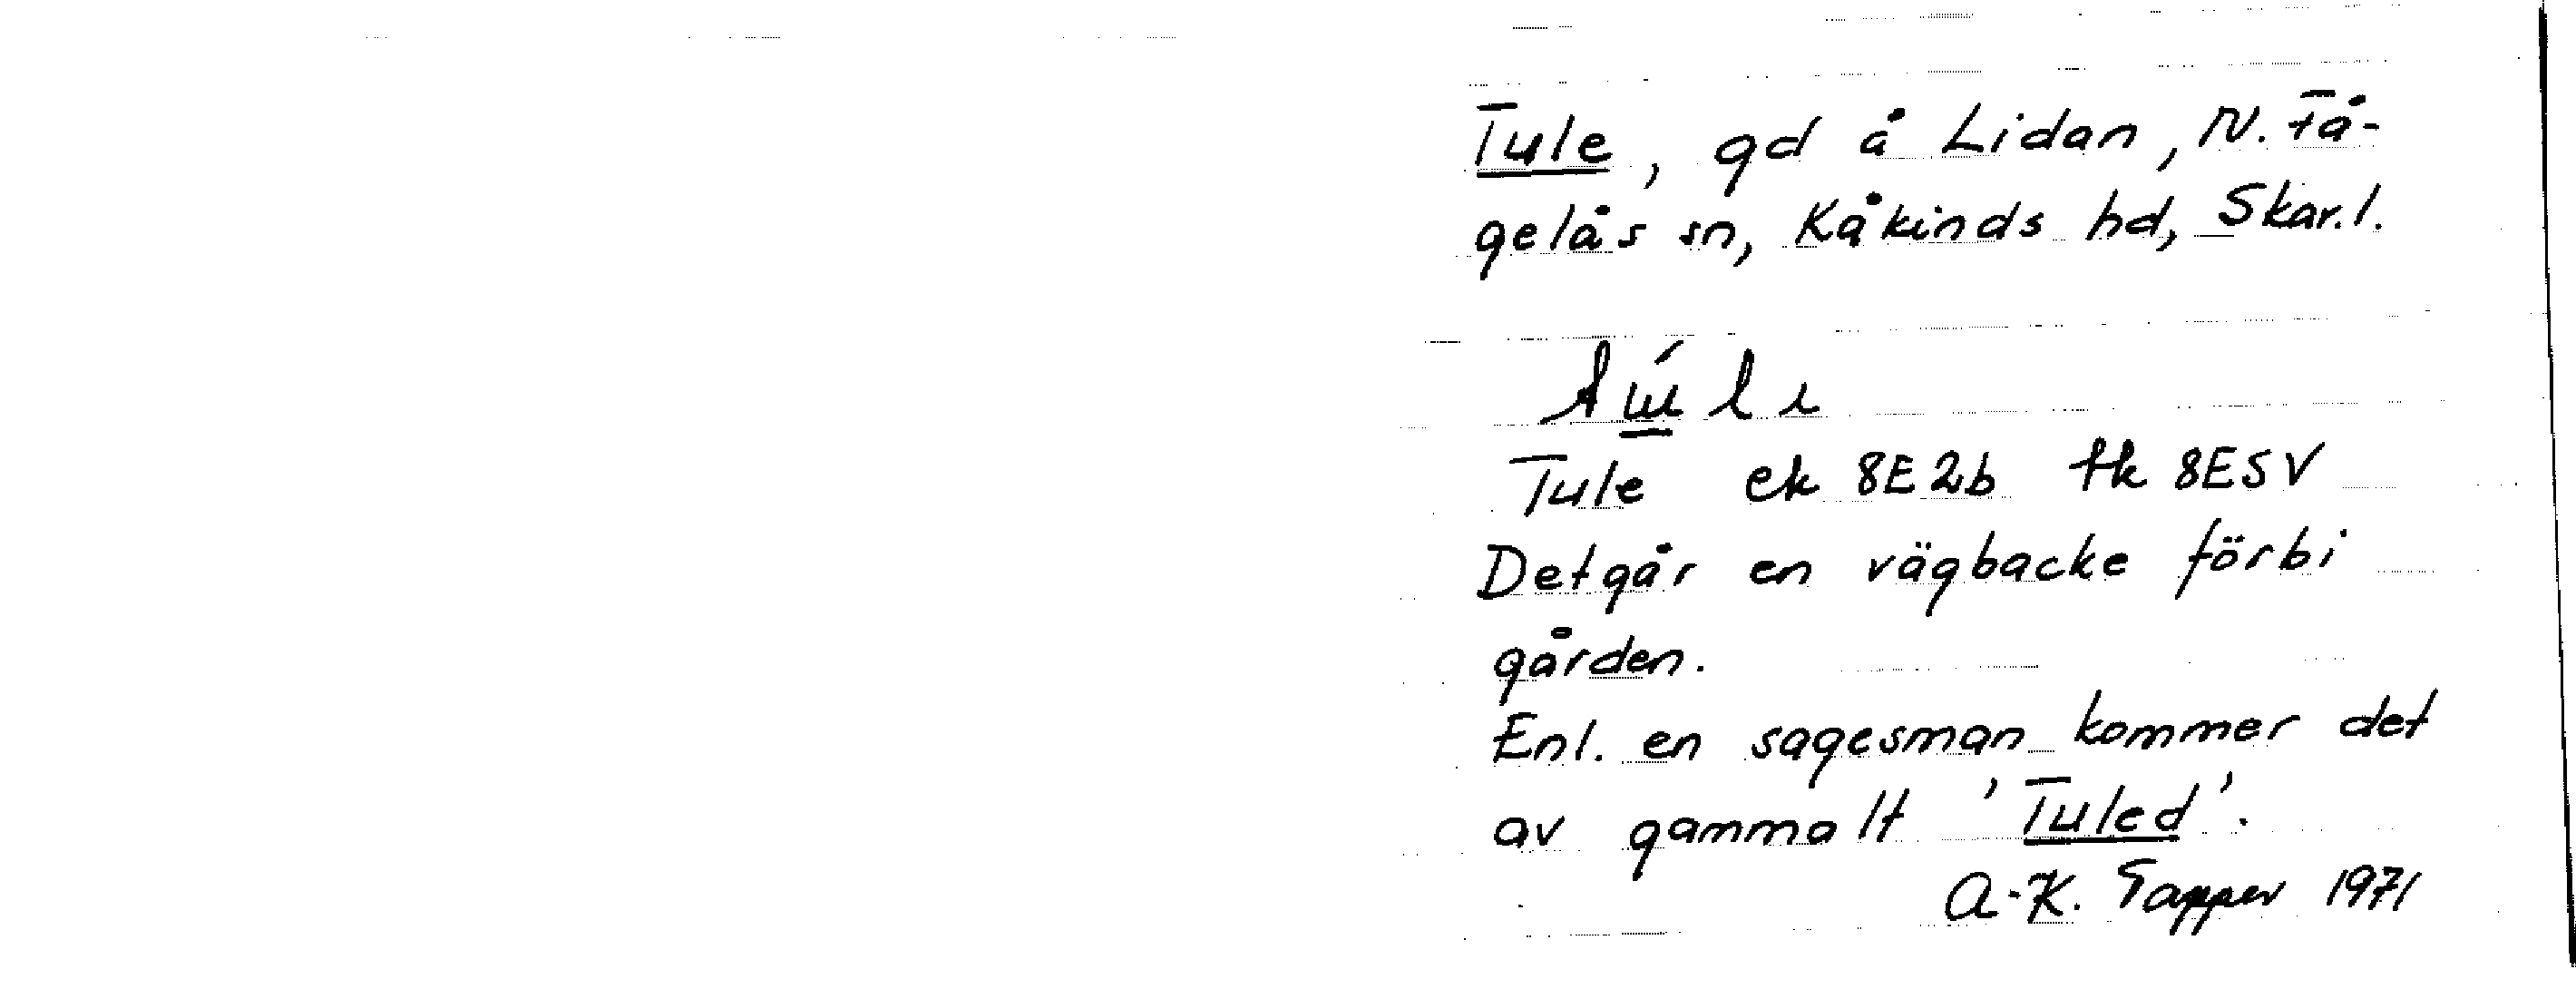 Tule, gd å Lidan, N. Få-
gelås sn, Kåkinds hd, Skar.l.
Tule ek 8E2b tk 8ESV
Det går en vägbacke förbi
gården.
Enl. en sagesman kommer det
av gammalt 'Tuled'.
A-K. Tapper 1971